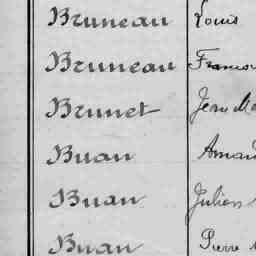 Bruneau Louis
Bruneau
Brunet Jean
Buan
Buan Julien
Buan Pierre